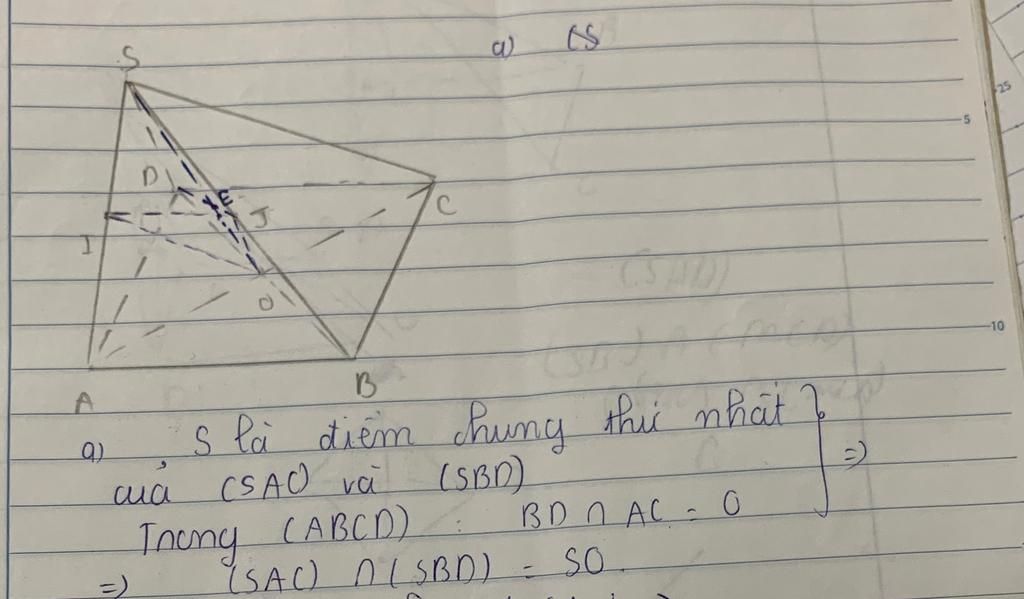 a) (S
S
D
E
I
J
C
O
A
B
25
5
10
a) S là điểm chung thứ nhất
của (SAC) và (SBD) } =>
Trong (ABCD) : BD ∩ AC = O
=> (SAC) ∩ (SBD) = SO.